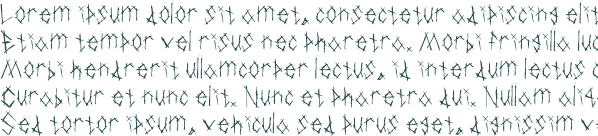 Lorem ipsum dolor sit amet, consectetur adipiscing elit
Etiam tempor vel risus nec pharetra. Morbi fringilla luc
Morbi hendrerit ullamcorper lectus, id interdum lectus
Curabitur et nunc elit. Nunc et pharetra dui. Nullam aliq
Sed tortor ipsum, vehicula sed purus eget, dignissim